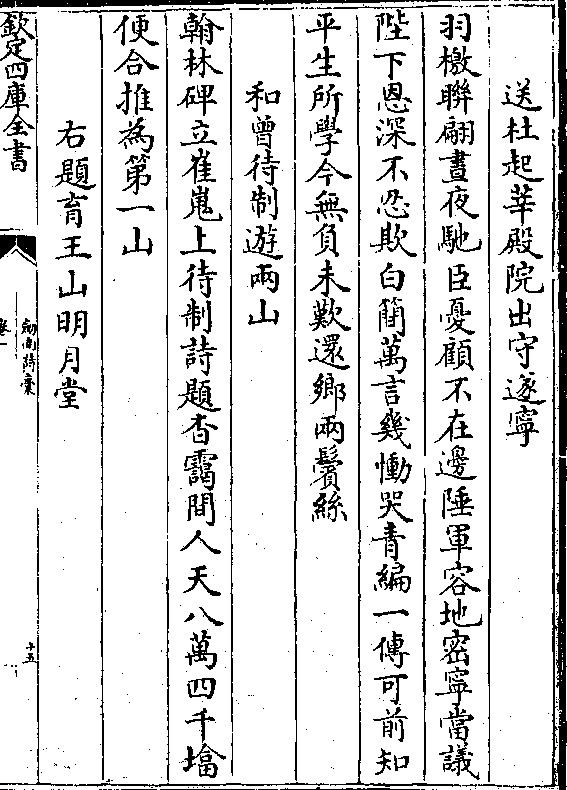 送杜起莘殿院出守遂寧
羽檄聯翩晝夜馳臣憂顧不在邊陲軍容地密寧當議
陛下恩深不忍欺白簡萬言幾慟哭青編一傳可前知
平生所學今無負未歎還鄉兩鬢絲
和曾待制遊兩山
翰林碑立崔嵬上待制詩題杳靄間人天八萬四千塔
便合推為第一山
右題育王山明月堂
欽定四庫全書
劍南詩稾
卷一
十五